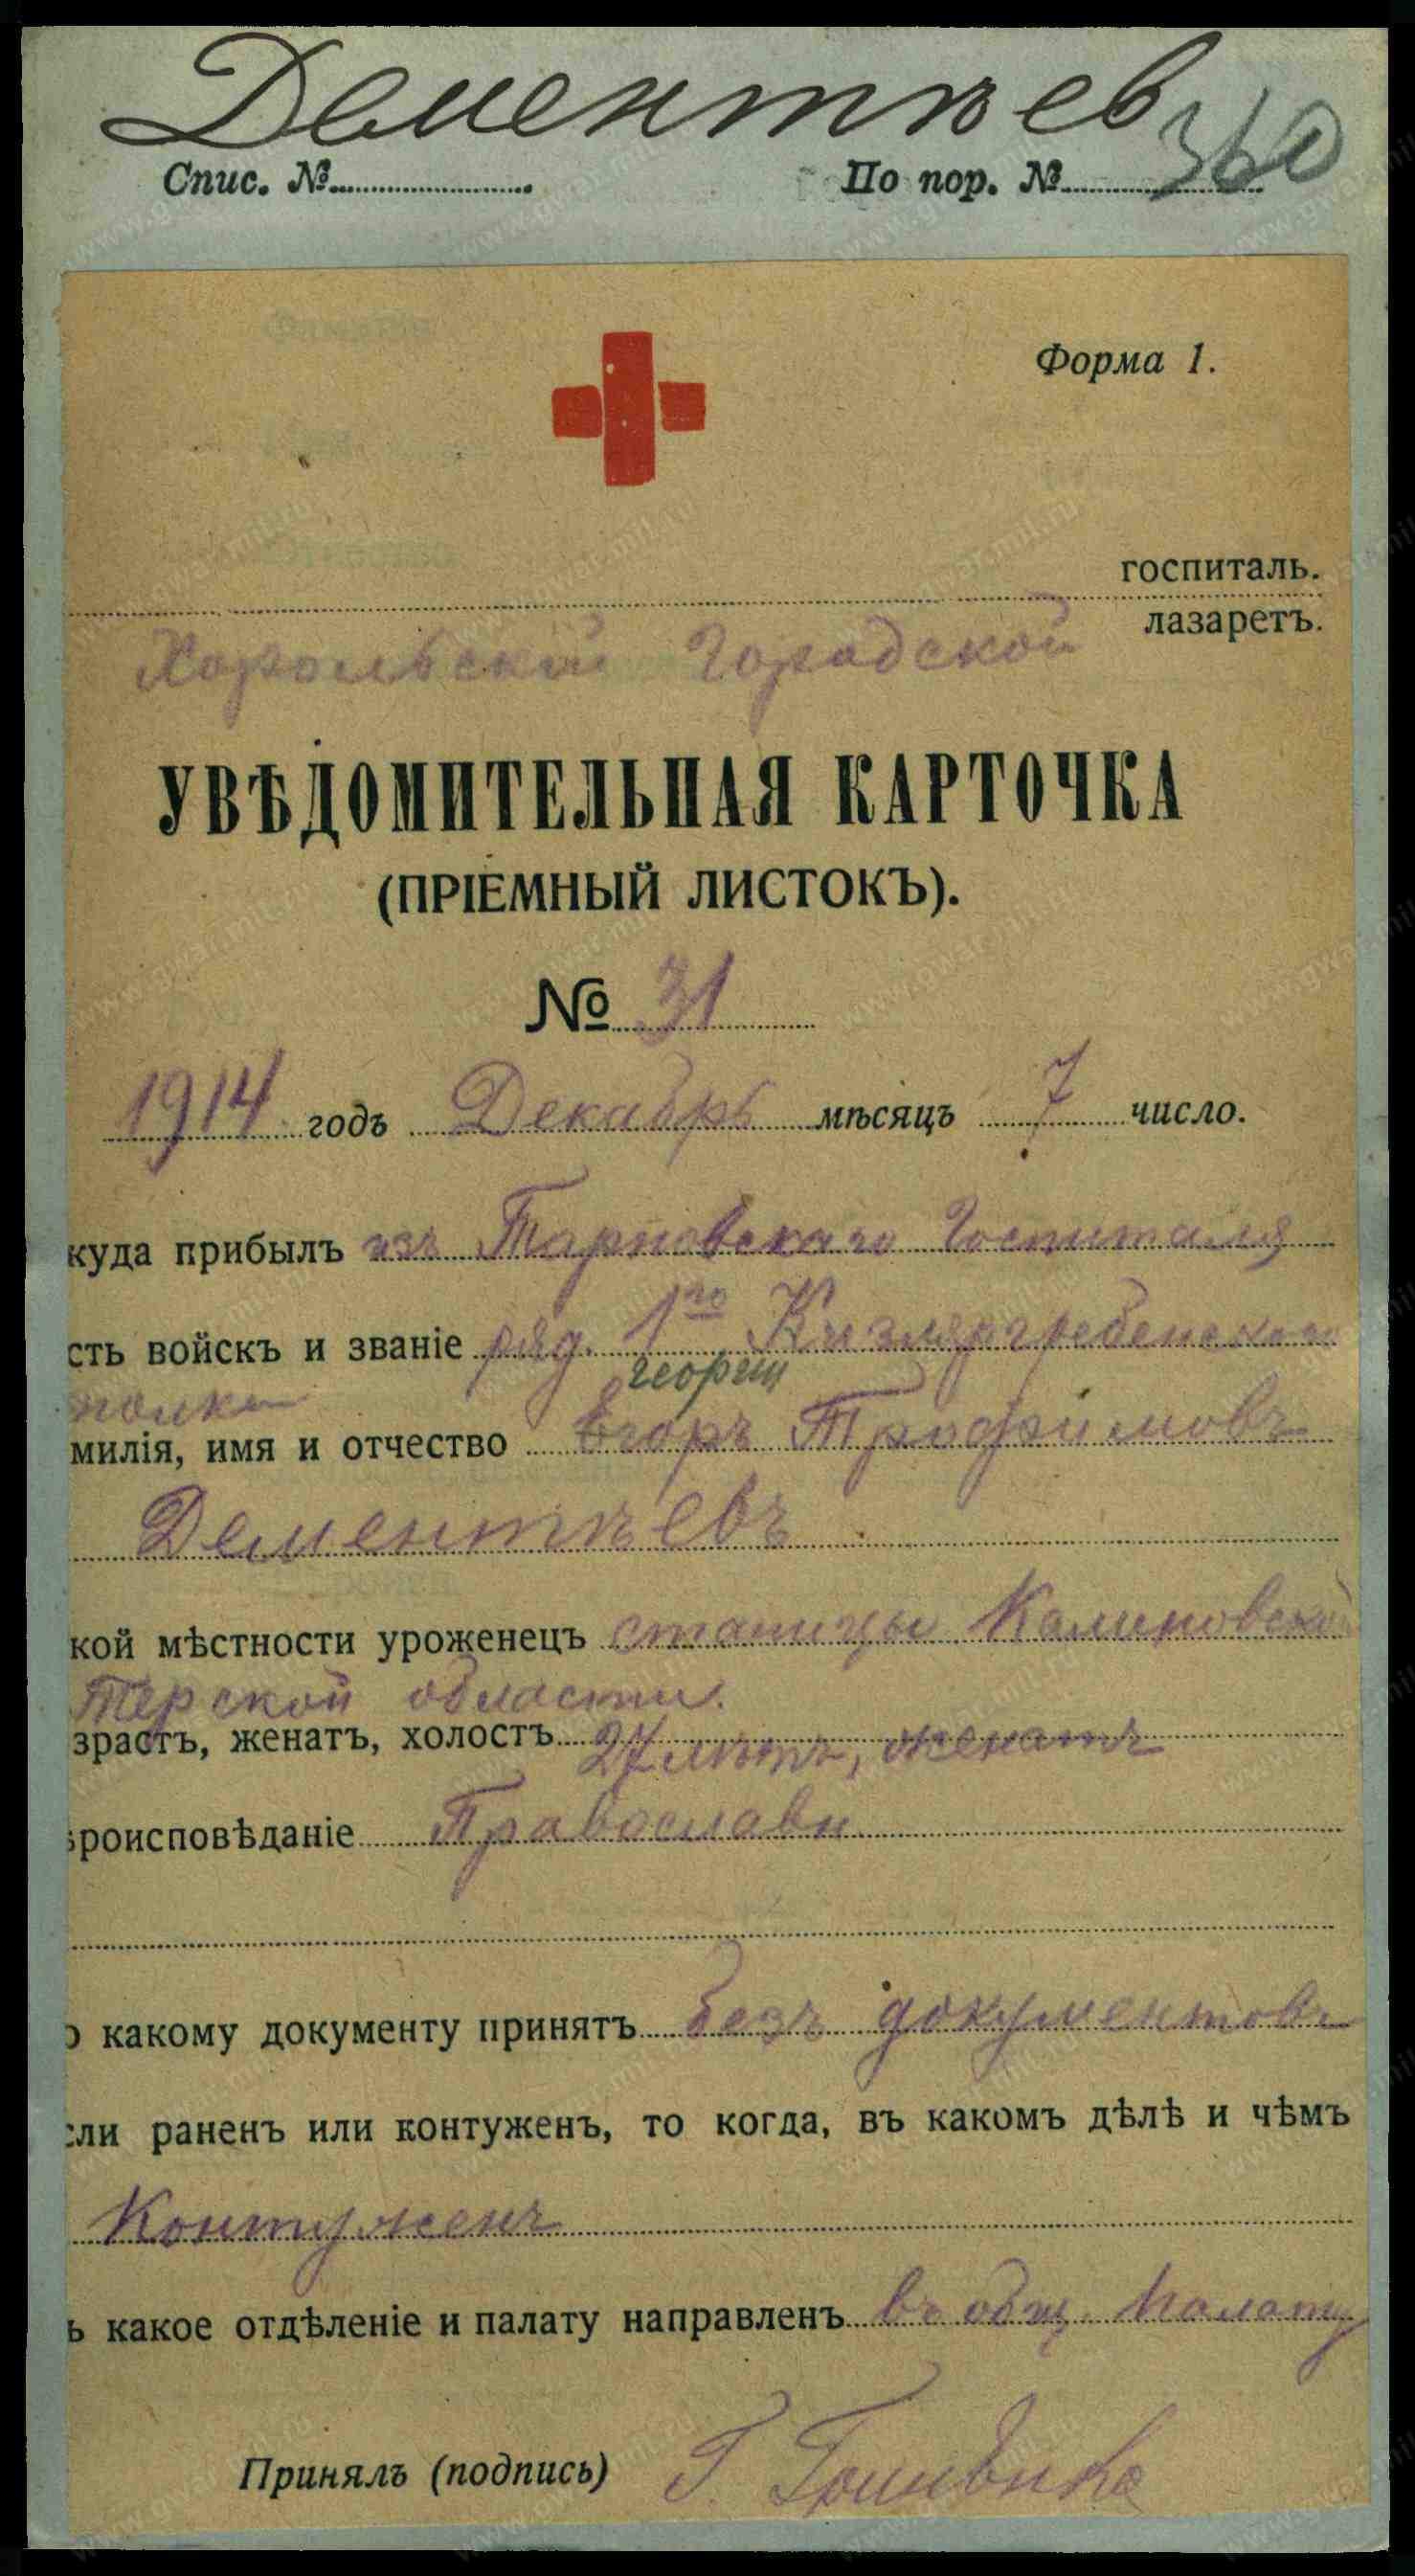 Дементьев
Спис. № По пор. № 360
Форма 1.
госпиталь.
лазаретъ.
Хорольскій Городской
УВѢДОМИТЕЛЬНАЯ КАРТОЧКА
(ПРІЕМНЫЙ ЛИСТОКЪ).
№ 31
1914 годъ Декабрь мѣсяцъ 7 число.
куда прибылъ изъ Тарновскаго Госпиталя
сть войскъ и званіе ряд. 1го Кизлярогребенского
полка георги
милія, имя и отчество Егоръ Трофимовъ
Дементьевъ
кой мѣстности уроженецъ станицы Калиновской
Терской области.
зрастъ, женатъ, холостъ 27 лѣтъ, женатъ
роисповѣданіе Православн.
о какому документу принятъ безъ документовъ
сли раненъ или контуженъ, то когда, въ какомъ дѣлѣ и чѣмъ
Контуженъ
ь какое отдѣленіе и палату направленъ въ общ. палату
Принялъ (подпись) Г.